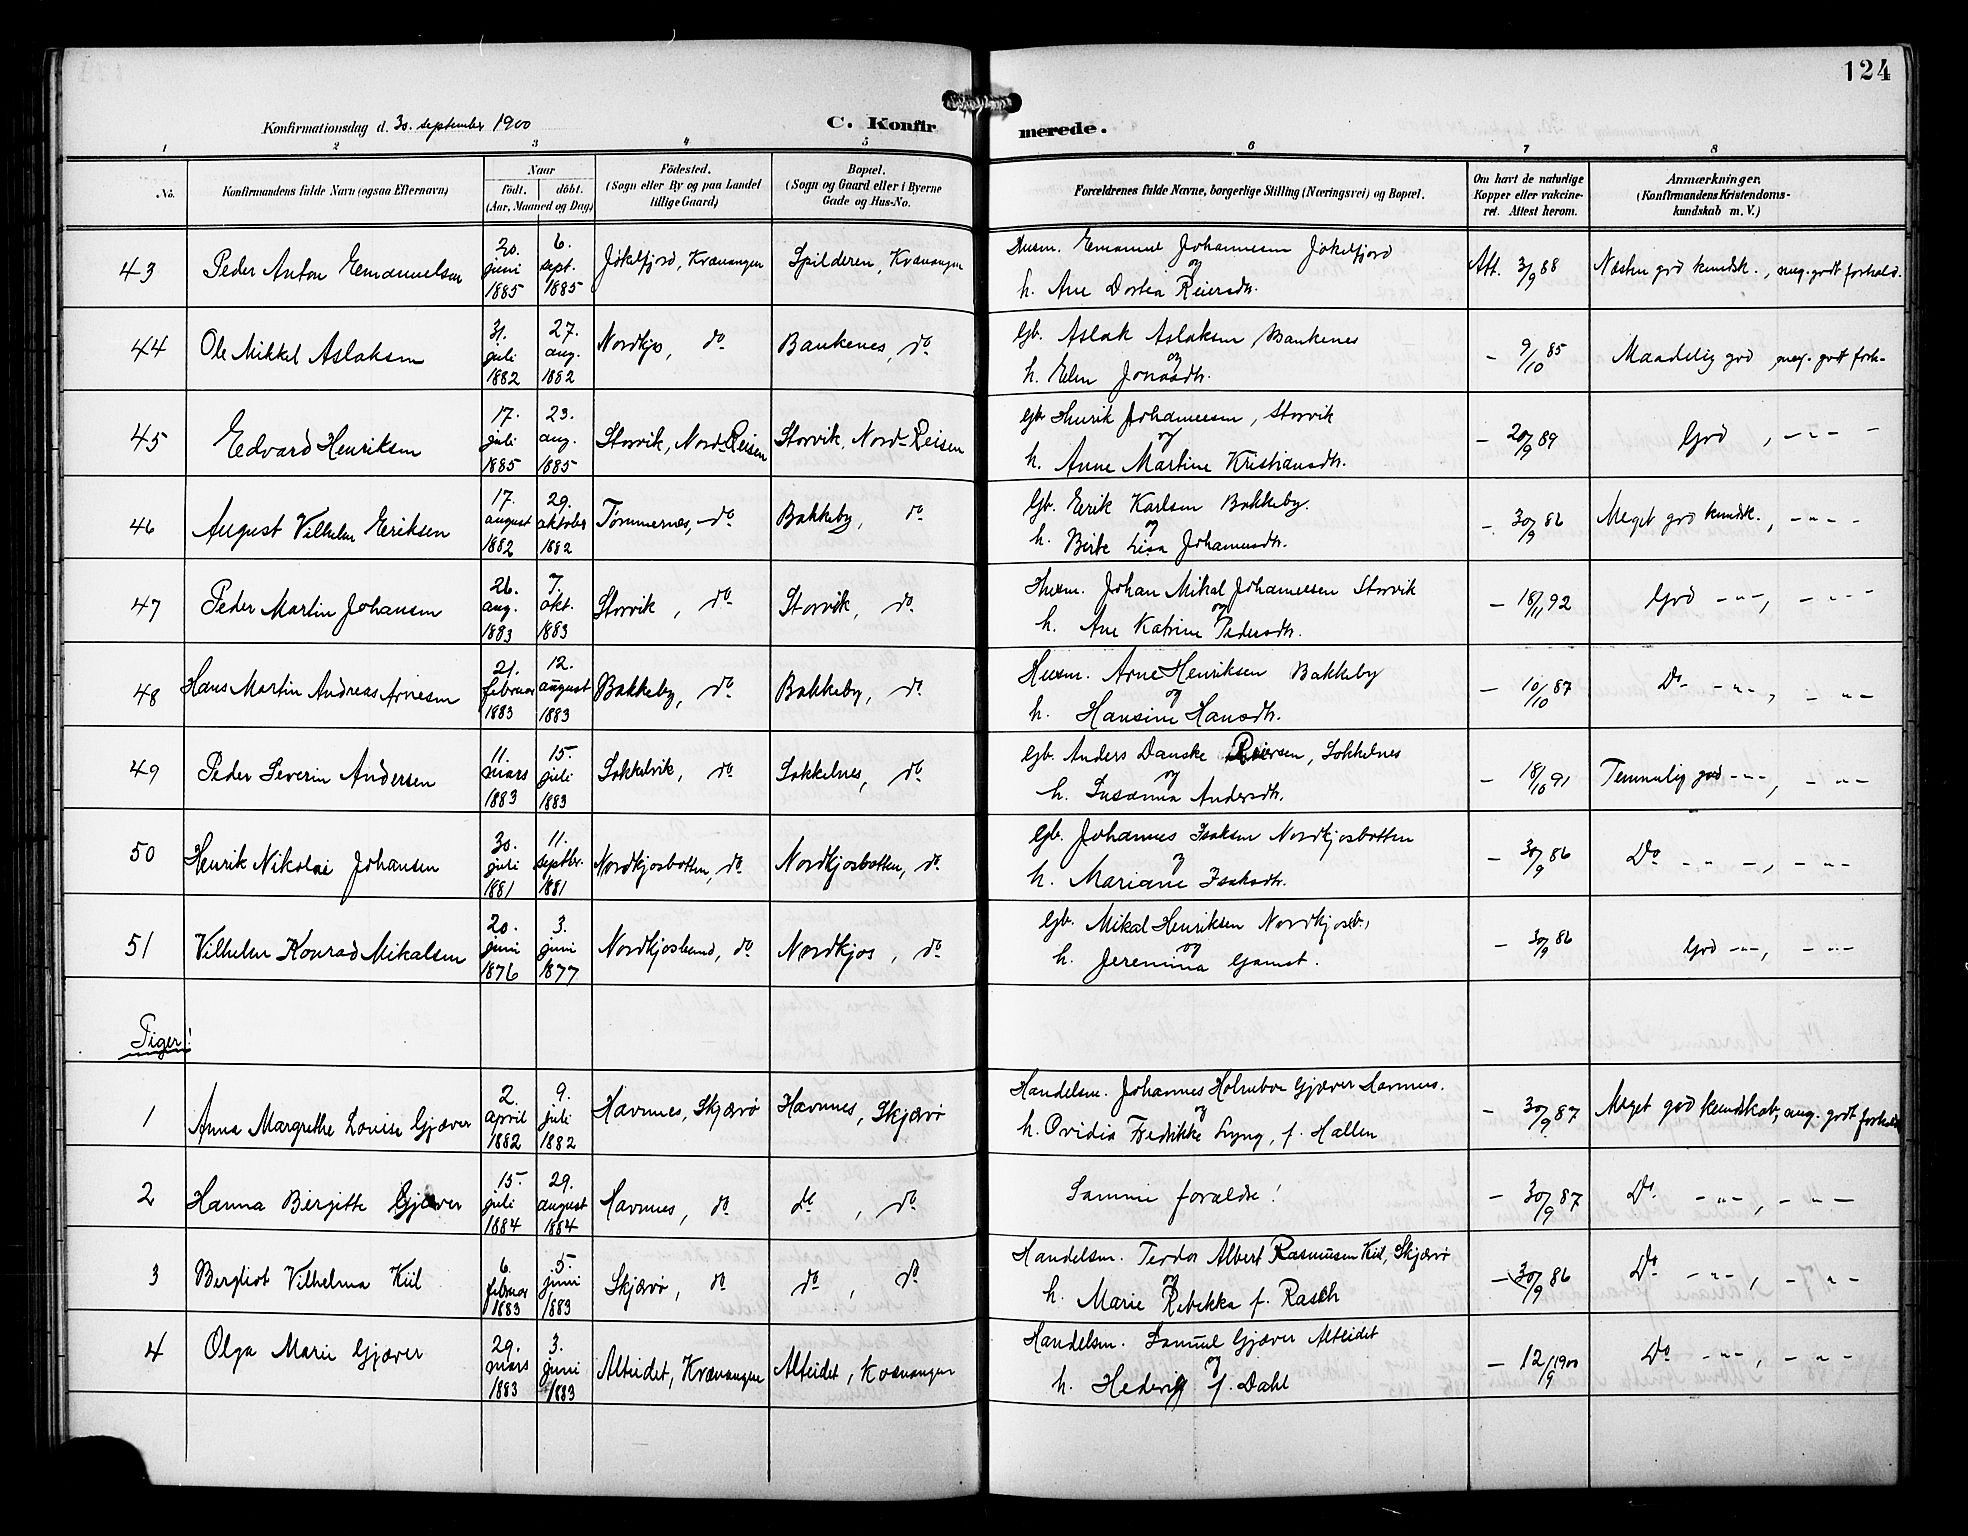 124
Konfirmationsdag d. 30. september 1900
C. Konfirmerede.
1 2 3 4 5 6 7 8
No.
Konfirmandens fulde Navn (ogsaa Efternavn)
Naar
födt. döbt.
(Aar, Maaned og Dag)
Födested.
(Sogn eller By og paa Landet
tillige Gaard)
Bopæl.
(Sogn og Gaard eller i Byerne
Gade og Hus-No.
Forældrenes fulde Navne, borgerlige Stilling (Næringsvei) og Bopæl.
Om havt de naturlige
Kopper eller vakcine-
ret. Attest herom.
Anmærkninger,
(Konfirmandens Kristendoms-
kundskab m. V.)
43 Peder Anton Emanuelsen 20. juni 1885 6. sept. 1885 Jøkelfjord, Kvænangen Spilderen, Kvænangen
Husm. Emanuel Johannesen Jøkelfjord
og
h. Ane Dortea Reiersdtr.
Att. 3/9 88 Næsten god kundsk., meg. godt forhold.
44 Ole Mikkel Aslaksen 31. juli 1882 27. aug. 1882 Nordkjos, do Bankenes, do
Gb. Aslak Aslaksen Bankenes
og
h. Elen Jonasdtr.
- 9/10 85 Maadelig god, meg. godt forh-
45 Edvard Henriksen 17. juli 1885 23. aug. 1885 Storvik, Nord-Reisen Storvik, Nord-Reisen
Gb. Henrik Johannesen, Storvik
og
h. Anne Martine Kristiansdtr.
- 20/9 89 God, - " -
46 August Vilhelm Eriksen 17. august 1882 29. oktober 1882 Tømmernes, do Bakkeby, do
Gb. Erik Karlsen Bakkeby.
og
h. Berte Lisa Johannesdtr.
- 30/9 86 Meget god kundsk., - " -
47 Peder Martin Johansen 26. aug. 1883 7. okt. 1883 Storvik, do Storvik, do
Husm. Johan Mikal Johannesen Storvik
og
h. Ane Katrine Pedersdtr.
- 18/11 92 God - " -, - " -
48 Hans Martin Andreas Arnesen 21. februar 1883 12. august 1883 Bakkeby, do Bakkeby, do
Husm. Arne Henriksen Bakkeby
og
h. Hansine Hansdtr.
- 10/10 87 Do - " -, - " -
49 Peder Severin Andersen 11. mars 1883 15. juli 1883 Sokkelvik, do Sokkelnes, do
Gb. Anders Danske Reiersen, Sokkelnes
og
h. Susanna Andersdtr.
- 18/10 91 Temmelig god - " -, - " -
50 Henrik Nikolai Johansen 30. juli 1881 11. septbr. 1881 Nordkjosbotten, do Nordkjosbotten, do
Gb. Johannes Isaksen Nordkjosbotten
og
h. Mariane Isaksdtr.
- 30/9 86 Do - " -, - " -
51 Vilhelm Konrad Mikalsen 20. juni 1876 3. juni 1877 Nordkjosbund, do Nordkjos, do
Gb. Mikal Henriksen Nordkjosb.,
og
h. Jeremina Gamst.
- 30/9 86 God - " -, - " -
Piger!
1 Anna Margrethe Lovise Gjæver 2. april 1882 9. juli 1882 Havnnes, Skjærvø Havnnes, Skjærvø
Handelsm. Johannes Holmboe Gjæver Havnnes.
og
h. Ovidia Fredrikke Lyng, f. Hallen
- 30/9 87 Meget god kundskab, meg. godt forhold
2 Hanna Bergitte Gjæver 15. juli 1884 29. august 1884 Havnnes, do do, do
Samme forældre!
- 30/9 87 Do - " -, - " -
3 Bergliot Vilhelma Kiil 6. februar 1883 5. juni 1883 Skjærvø, do do, do
Handelsm. Teodor Albert Rasmusen Kiil, Skjærvø
og
h. Marie Rebekka f. Rasch
- 30/9 86 Do - " -, - " -
4 Olga Marie Gjæver 29. mars 1883 3. juni 1883 Alteidet, Kvænangen Alteidet, Kvænangen
Handelsm. Samuel Gjæver Alteidet
og
h. Hedevig f. Dahl
- 12/9 1900 Do - " -, - " -